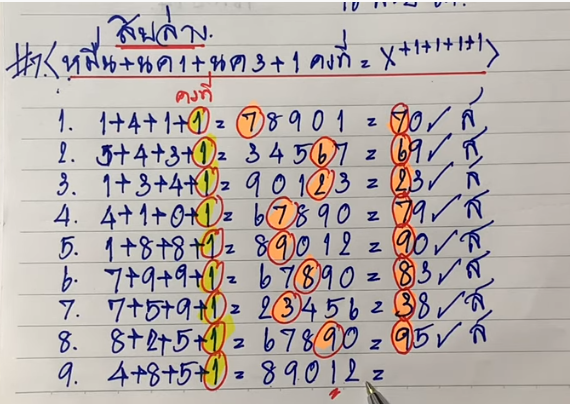 สิบล่าง.
#7.<หมื่น+นค1+นค3+1 คงที่ = X+1+1+1+1>
คงที่
1. 1+4+1+1 = 78901 = 70 ✓ ส
2. 5+4+3+1 = 34567 = 69 ✓ ส
3. 1+3+4+1 = 90123 = 23 ✓ ส
4. 4+1+0+1 = 67890 = 79 ✓ ส
5. 1+8+8+1 = 89012 = 90 ✓ ส
6. 7+9+9+1 = 67890 = 83 ✓ ส
7. 7+5+9+1 = 23456 = 38 ✓ ส
8. 8+2+5+1 = 67890 = 95 ✓ ส
9. 4+8+5+1 = 89012 =